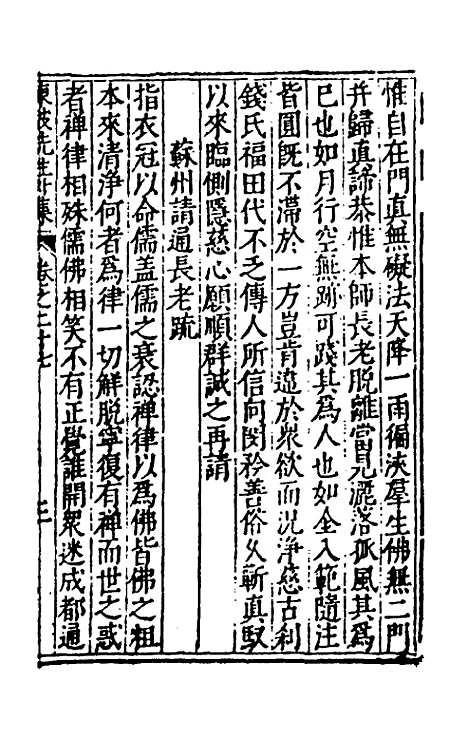 惟自在門真無礙法天降一雨徧浹羣生佛無二門
并歸真諦恭惟本師長老脫離當見灑落孤風其為
已也如月行空無跡可踐其為人也如金入範隨注
皆圓旣不滯於一方豈肯違於衆欲而况淨慈古刹
錢氏福田代不乏傳人所信向閔矜善俗久蘄真馭
以來臨側隱慈心願順群誠之再請
蘇州請通長老疏
指衣冠以命儒盖儒之衰認禪律以為佛皆佛之粗
本來清淨何者為律一切解脫寧復有禪而世之惑
者禪律相殊儒佛相笑不有正覺誰開衆迷成都通
東坡先生外集 卷之二十七 三